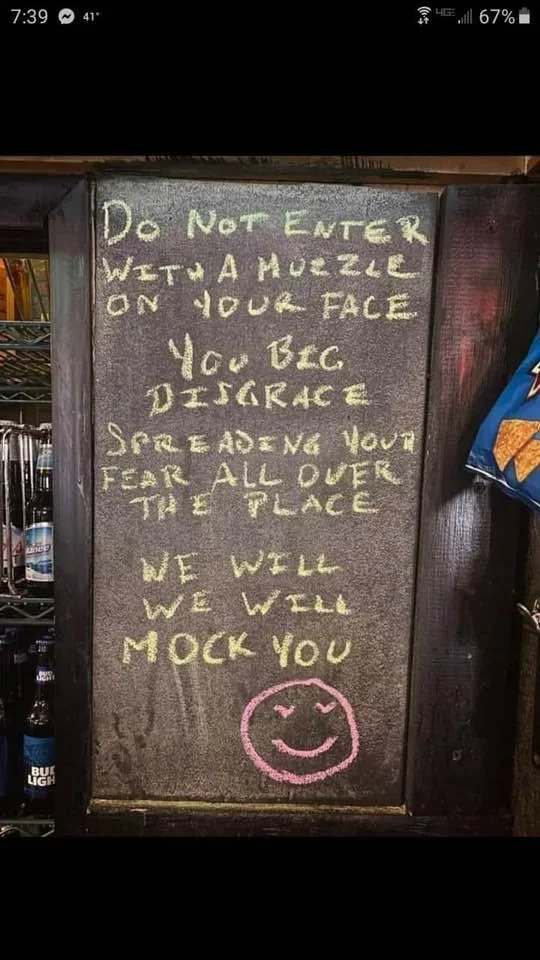 7:39 41° 4GE 67%
Do NOT ENTER
WITH A MUZZLE
ON YOUR FACE
YOU BIG
DISGRACE
SPREADING YOUR
FEAR ALL OVER
THE PLACE
WE WILL
WE WILL
MOCK YOU
BUD
LIGHT
BUD
LIGH